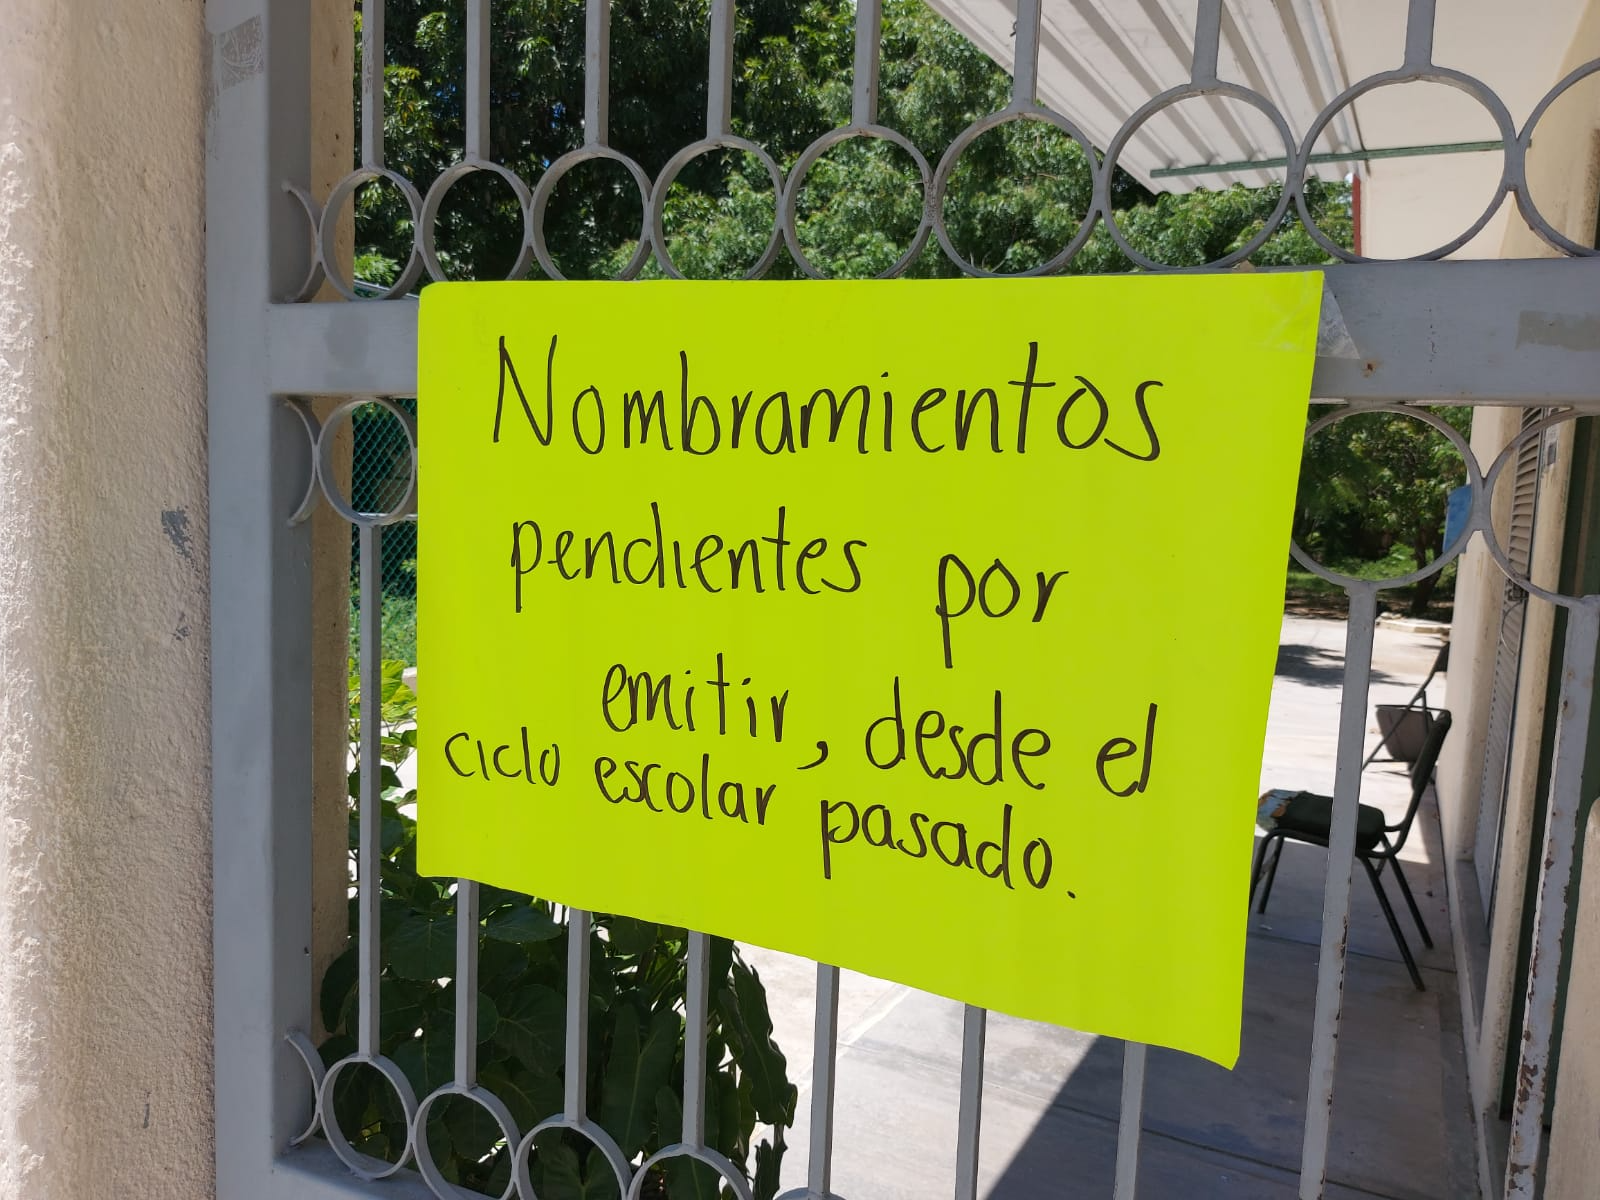 Nombramientos
pendientes por
emitir, desde el
ciclo escolar pasado.